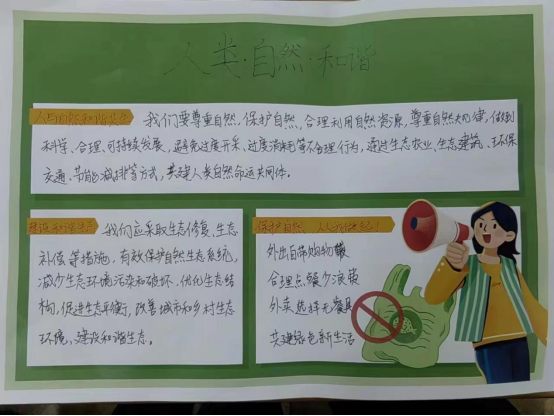 人类·自然·和谐
人与自然和谐共生
我们要尊重自然,保护自然,合理利用自然资源,尊重自然规律,做到
科学、合理、可持续发展,避免过度开采、过度消耗等不合理行为,通过生态农业、生态建筑、环保
交通、节能减排等方式,共建人类自然命运共同体。
建设和谐生态
我们应采取生态修复、生态
补偿等措施,有效保护自然生态系统,
减少生态环境污染和破坏,优化生态结
构,促进生态平衡,改善城市和乡村生态
环境,建设和谐生态。
保护自然,人人
外出自带购物
合理点餐少浪费
外卖选择无餐具
共建绿色新生活